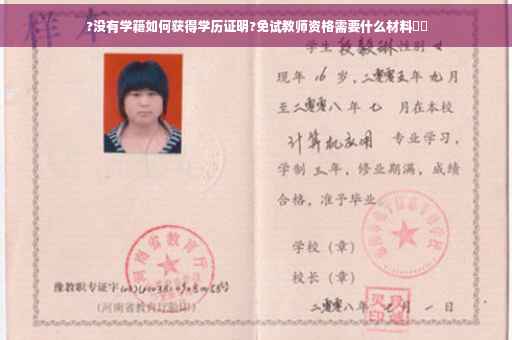 样本
?没有学藉如何获得学历证明?免试教师资格需要什么材料
学生段毅琳性别女
现年16岁,二零零五年九月
至二零零八年七月在本校
计算机应用专业学习,
学制三年,修业期满,成绩
合格,准予毕业
学校(章)
校长(章)
河南省教育厅
豫教职专证字
(河南省教育厅验印)
二零零八年七月一日